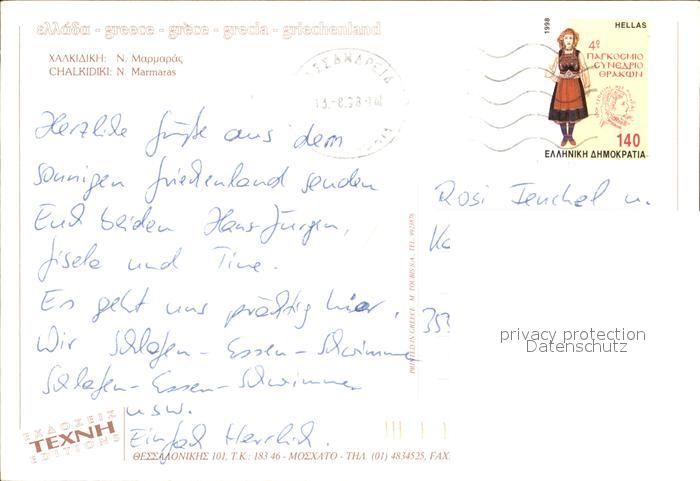 ελλάδα - greece - grèce - grecia - griechenland
ΧΑΛΚΙΔΙΚΗ: Ν. Μαρμαράς
CHALKIDIKI: N. Marmaras
1998
HELLAS
4º
ΠΑΓΚΟΣΜΙΟ
ΣΥΝΕΔΡΙΟ
ΘΡΑΚΩΝ
140
ΕΛΛΗΝΙΚΗ ΔΗΜΟΚΡΑΤΙΑ
Herzliche Grüße aus dem
sonnigen Griechenland senden
Euch beiden Hans-Jürgen,
Gisela und Tine.
Es geht uns prächtig hier.
Wir Schlafen - Essen - Schwimmen
Schlafen - Essen - Schwimmen
usw.
Einfach Herrlich.
Rosi u.
353
privacy protection
Datenschutz
PRINTED IN GREECE - M. TOURIS S.A.
ΕΚΔΟΣΕΙΣ
ΤΕΧΝΗ
EDITIONS
ΘΕΣΣΑΛΟΝΙΚΗΣ 101, Τ.Κ.: 183 46 - ΜΟΣΧΑΤΟ - ΤΗΛ. (01) 4834525, FAX